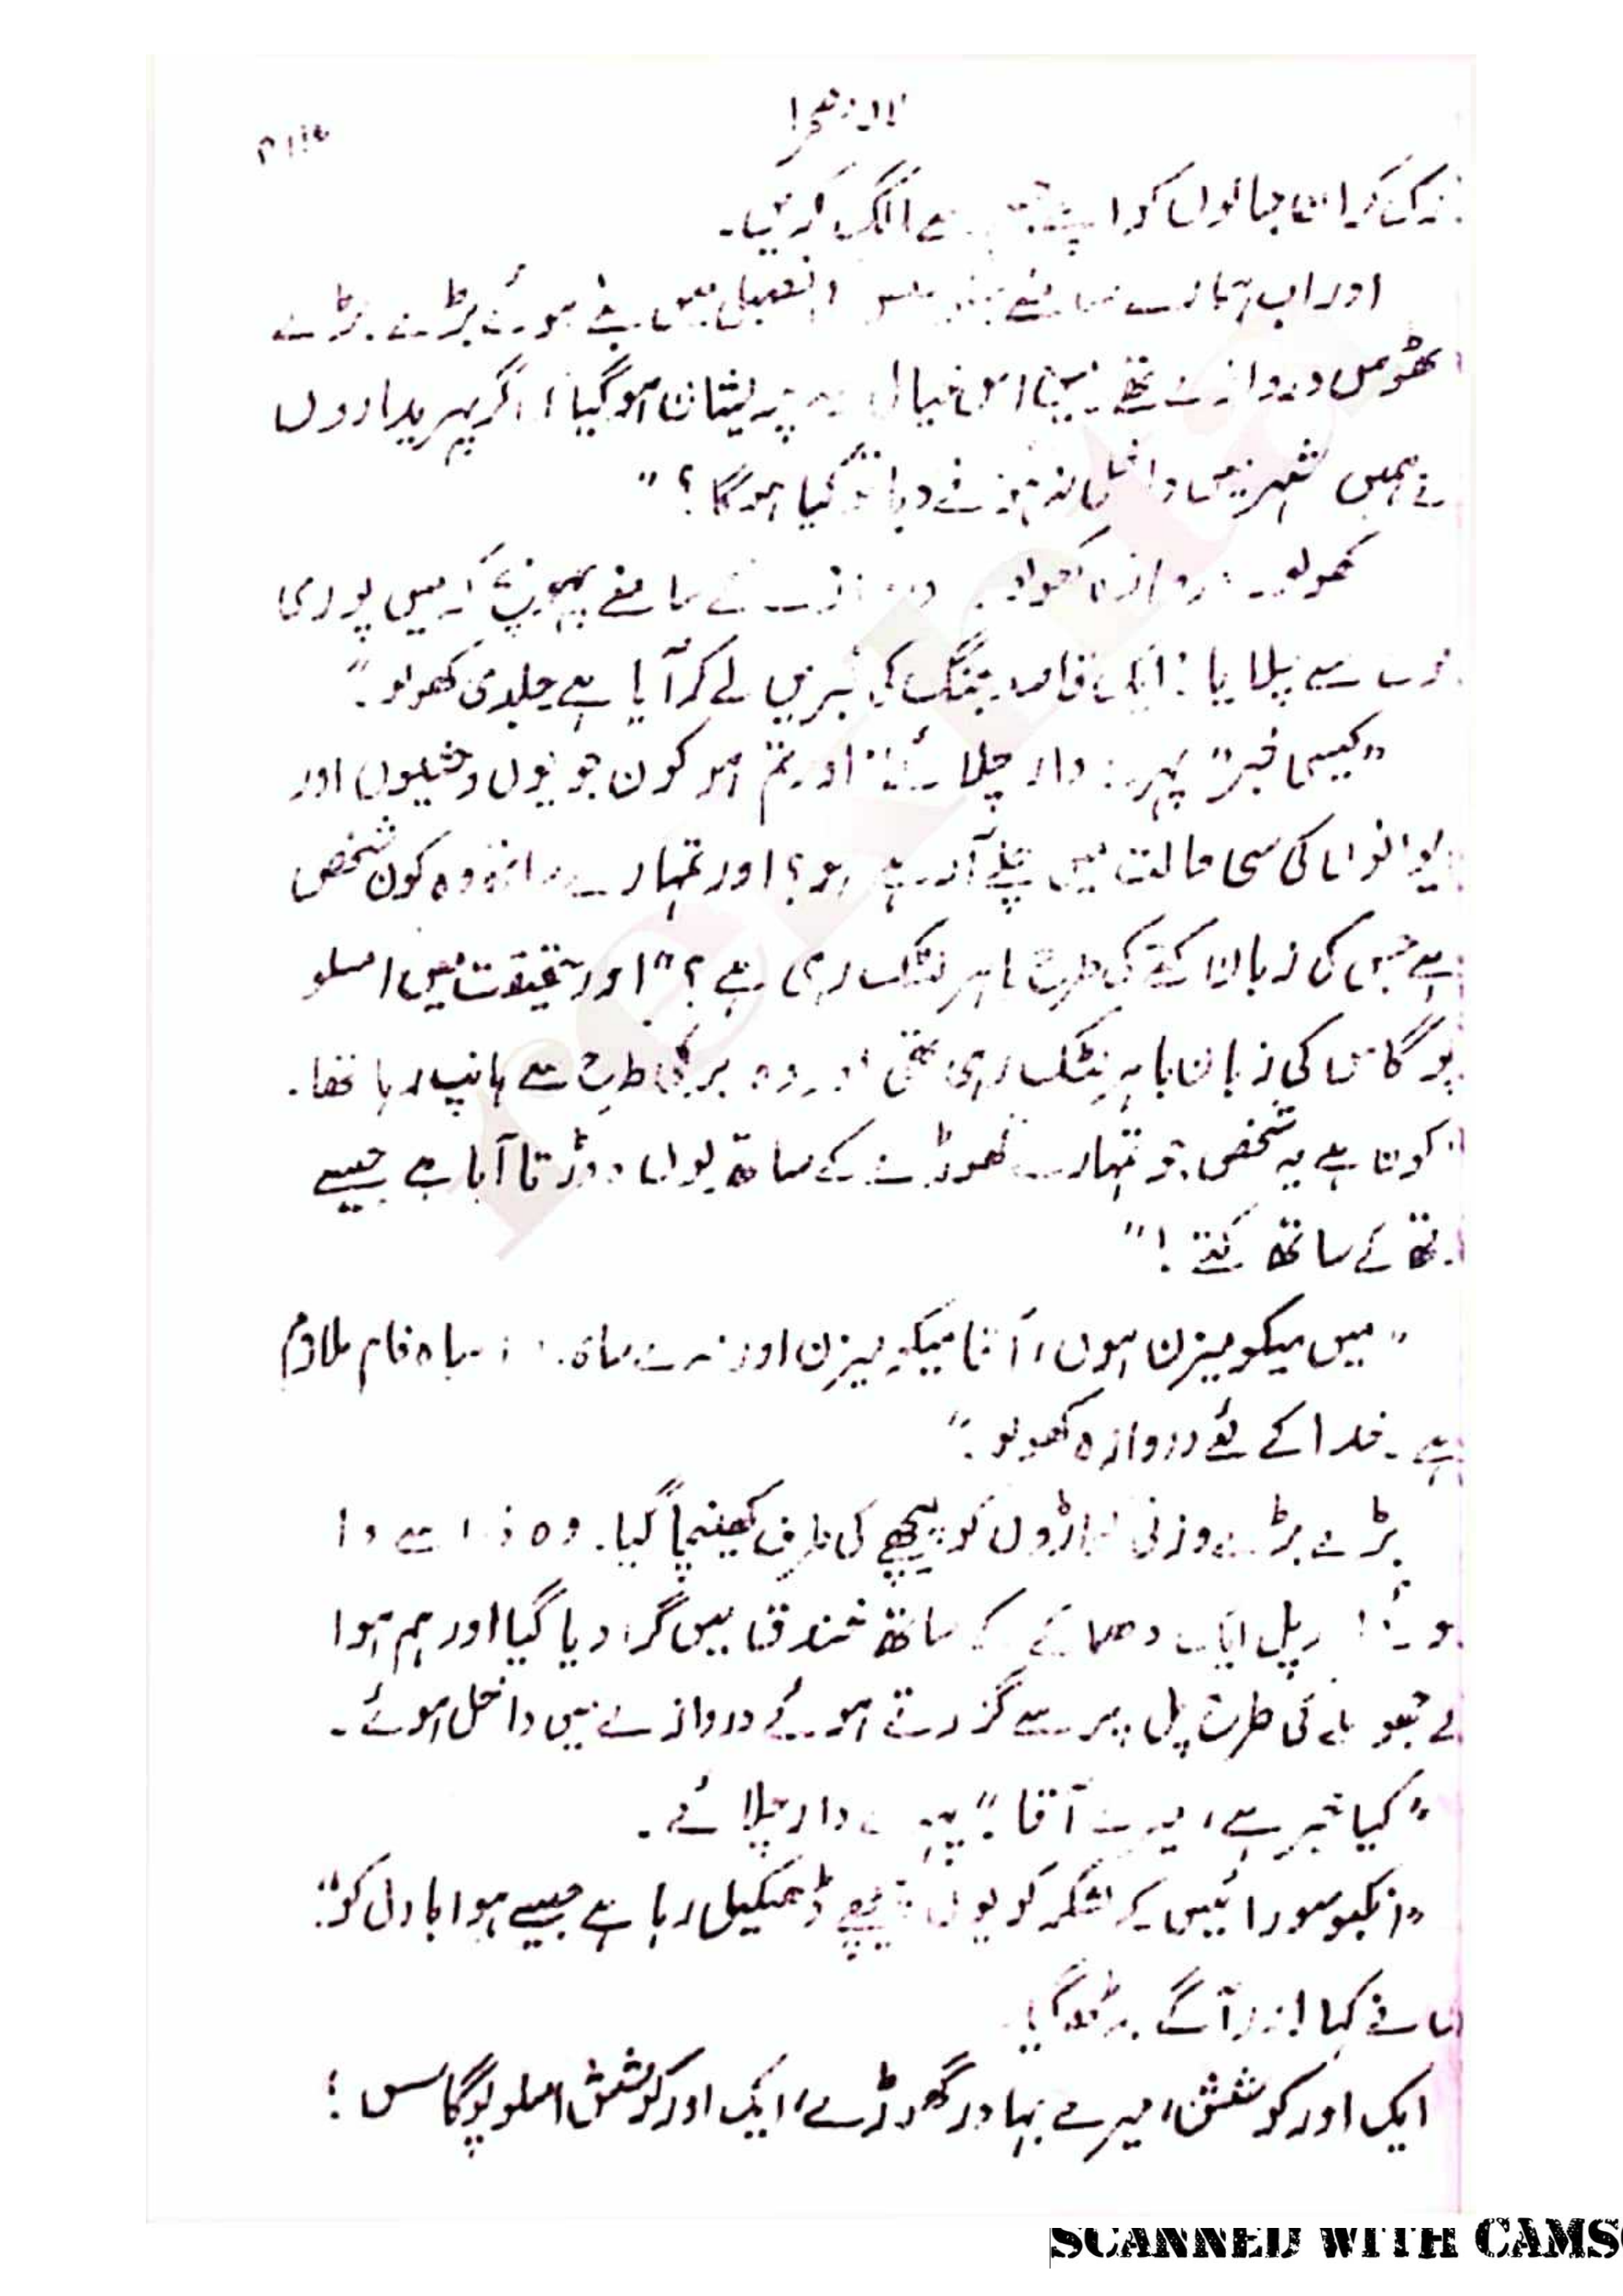 ان جانوں کو اپنے سے الگ کریں۔
اور اب ہمارے سامنے فصیل میں بنے ہوئے بڑے بڑے
ٹھوس دروازے تھے۔ میں اس خیال سے پریشان ہو گیا، اگر پہریداروں
نے ہمیں شہر میں داخل نہ ہونے دیا تو کیا ہوگا؟"
کھولو۔ دروازہ کھولو۔ دروازے کے سامنے پہونچ کر میں پوری
سے چلایا: ایک قاصد جنگ کی خبریں لے کر آیا ہے جلدی کھولو۔"
"کیسی خبر" پہرے دار چلائے" اور تم ہو کون جو یوں وحشیوں اور
دیوانوں کی سی حالت میں چلے آ رہے ہو؟ اور تمہارے ساتھ وہ کون شخص
ہے جس کی زبان کتے کی طرح باہر لٹک رہی ہے؟" اور حقیقت میں املو
پوگاس کی زبان باہر لٹک رہی تھی اور وہ بری طرح سے ہانپ رہا تھا۔
"کون ہے یہ شخص جو تمہارے گھوڑے کے ساتھ یوں دوڑتا آیا ہے جیسے
رتھ کے ساتھ کتے!"
"میں میکومیزن ہوں، آقا میکومیزن اور میرے ساتھ سیاہ فام ملازم
ہے۔ خدا کے لئے دروازہ کھولو۔"
بڑے بڑے وزنی کواڑوں کو پیچھے کی طرف کھینچا گیا۔ وہ ذرا سے وا
ہوئے اور پل ایک دھماکے کے ساتھ خندق میں گرا دیا گیا اور ہم ہوا
کے جھونکے کی طرح پل پر سے گزرتے ہوئے دروازے میں داخل ہوئے۔
"کیا خبر ہے، میرے آقا؟" پہرے دار چلائے۔
"انکبو سورائیس کے لشکر کو یوں پیچھے ڈھکیل رہا ہے جیسے ہوا بادل کو"
میں نے کہا اور آگے بڑھ گیا۔
ایک اور کوشش، میرے بہادر گھوڑے، ایک اور کوشش املوپوگاس؛
SCANNED WITH CAMS